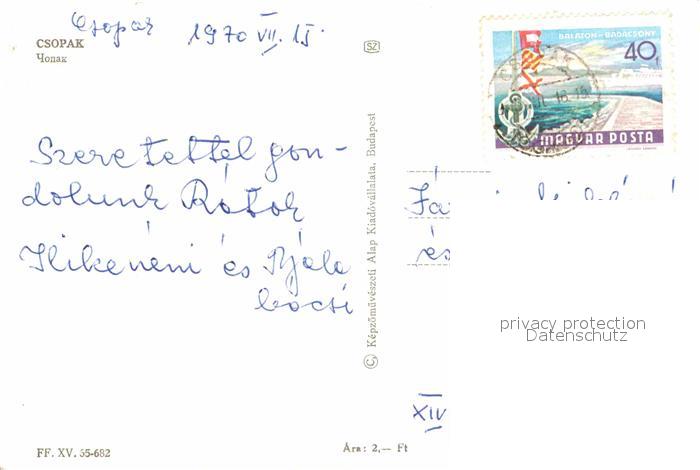 Csopak 1970 VII. 15.
CSOPAK
Чопак
SZ
BALATON-BADACSONY
40f
MAGYAR POSTA
Szeretettel gon-
dolunk Rátok
Ilikenéni és Béla
bácsi
és
XIV
© Képzőművészeti Alap Kiadóvállalata, Budapest
privacy protection
Datenschutz
FF. XV. 55-682
Ára: 2,— Ft